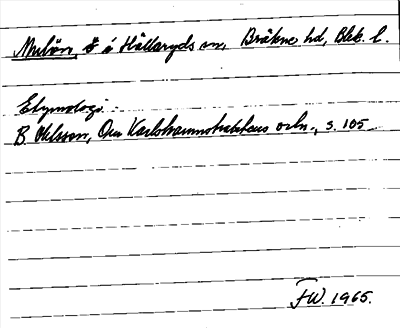 Mulön, ö i Hällaryds sn, Bräkne hd, Blek. l.
Etymologi.
B. Ohlsson, Om Karlshamnstraktens ortn., s. 105
FW. 1965.